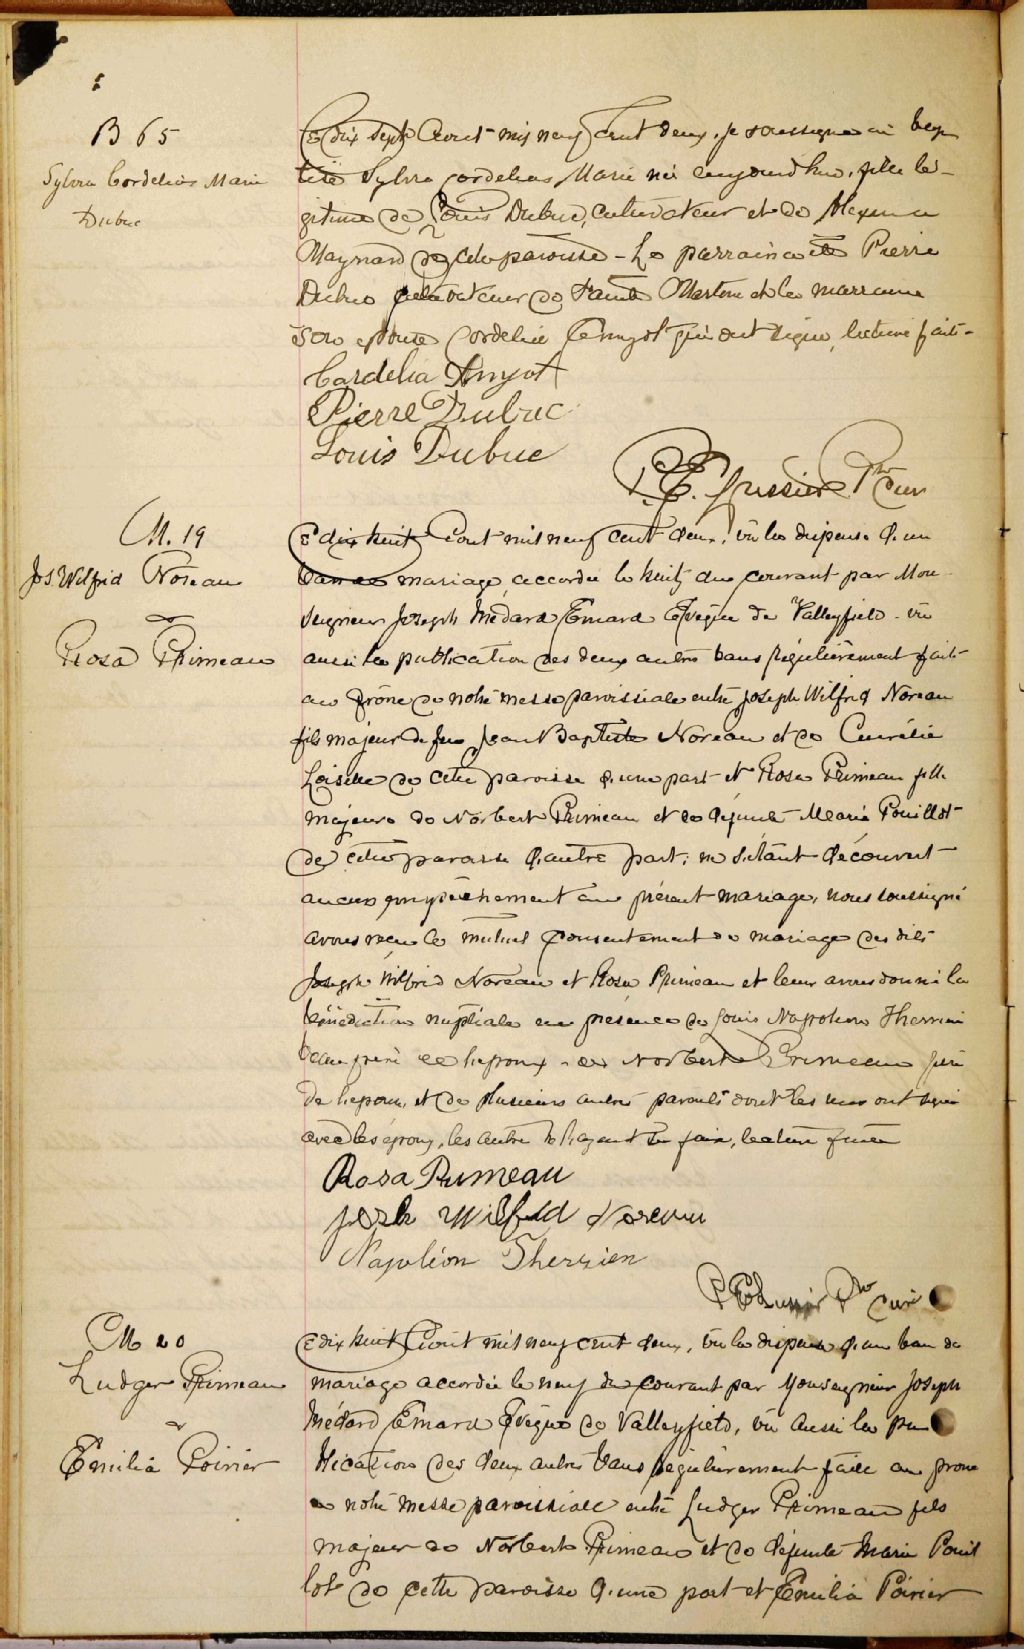 B 65
Sylvia Cordelias Marie
Dubuc
Ce dix sept Aout mil neuf cent deux, je soussigné ai bap
tisé Sylvia Cordelias Marie née aujourd'hui, fille lé-
gitime de Louis Dubuc, cultivateur et de
Maynard de cette paroisse - Le parrain a été Pierre
Dubuc cultivateur de Sainte Martine et la marraine
son épouse Cordélie Amyot qui ont signé, lecture faite-
Cardelia Amyot
Pierre Dubuc
Louis Dubuc
P. E. Lussier Ptre Curé
M. 19
Jos. Wilfrid Noreau
&
Rosa Primeau
Ce dix huit Aout mil neuf cent deux, vu la dispense d'un
ban de mariage accordée le huit du courant par Mon
seigneur Joseph Médard Emard Evêque de Valleyfield - vu
aussi la publication des deux autres bans régulièrement faite
au prône de notre messe paroissiale entre Joseph Wilfrid Noreau
fils majeur de feu Jean Baptiste Noreau et de Aurélie
Loiselle de cette paroisse d'une part et Rosa Primeau fille
majeure de Norbert Primeau et de défunte Marie Pouillot
de cette paroisse d'autre part; ne s'étant découvert
aucun empêchement au présent mariage, nous soussigné
avons reçu le mutuel consentement de mariage des dits
Joseph Wilfrid Noreau et Rosa Primeau et leur avons donné la
bénédiction nuptiale en présence de Louis Napoléon Therrien
beau frère de l'époux - de Norbert Primeau père
de l'épouse, et de plusieurs autres parents dont les uns ont signé
avec les époux, les autres ne l'ayant su faire, lecture faite
Rosa Primeau
Joseh Wilfrid Noreau
Napoléon Therrien
P E Lussier Ptre Curé
M 20
Ludger Primeau
&
Emilia Poirier
Ce dix huit Aout mil neuf cent deux, vu la dispense d'un ban de
mariage accordée le neuf du courant par Monseigneur Joseph
Médard Emard Evêque de Valleyfield, vu aussi la pu
blication des deux autres bans régulièrement faite au prône
de notre messe paroissiale entre Ludger Primeau fils
majeur de Norbert Primeau et de défunte Marie Pouil
lot de cette paroisse d'une part et Emilia Poirier